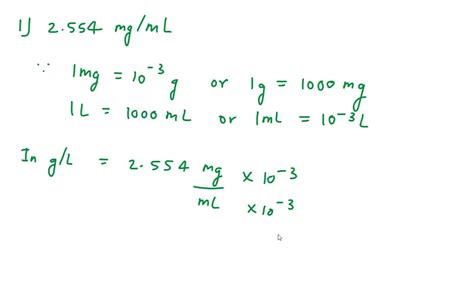 1) 2.554 mg/mL
∵ 1mg = 10⁻³ g or 1g = 1000 mg
1L = 1000 mL or 1mL = 10⁻³ L
In g/L = 2.554 mg × 10⁻³
mL × 10⁻³